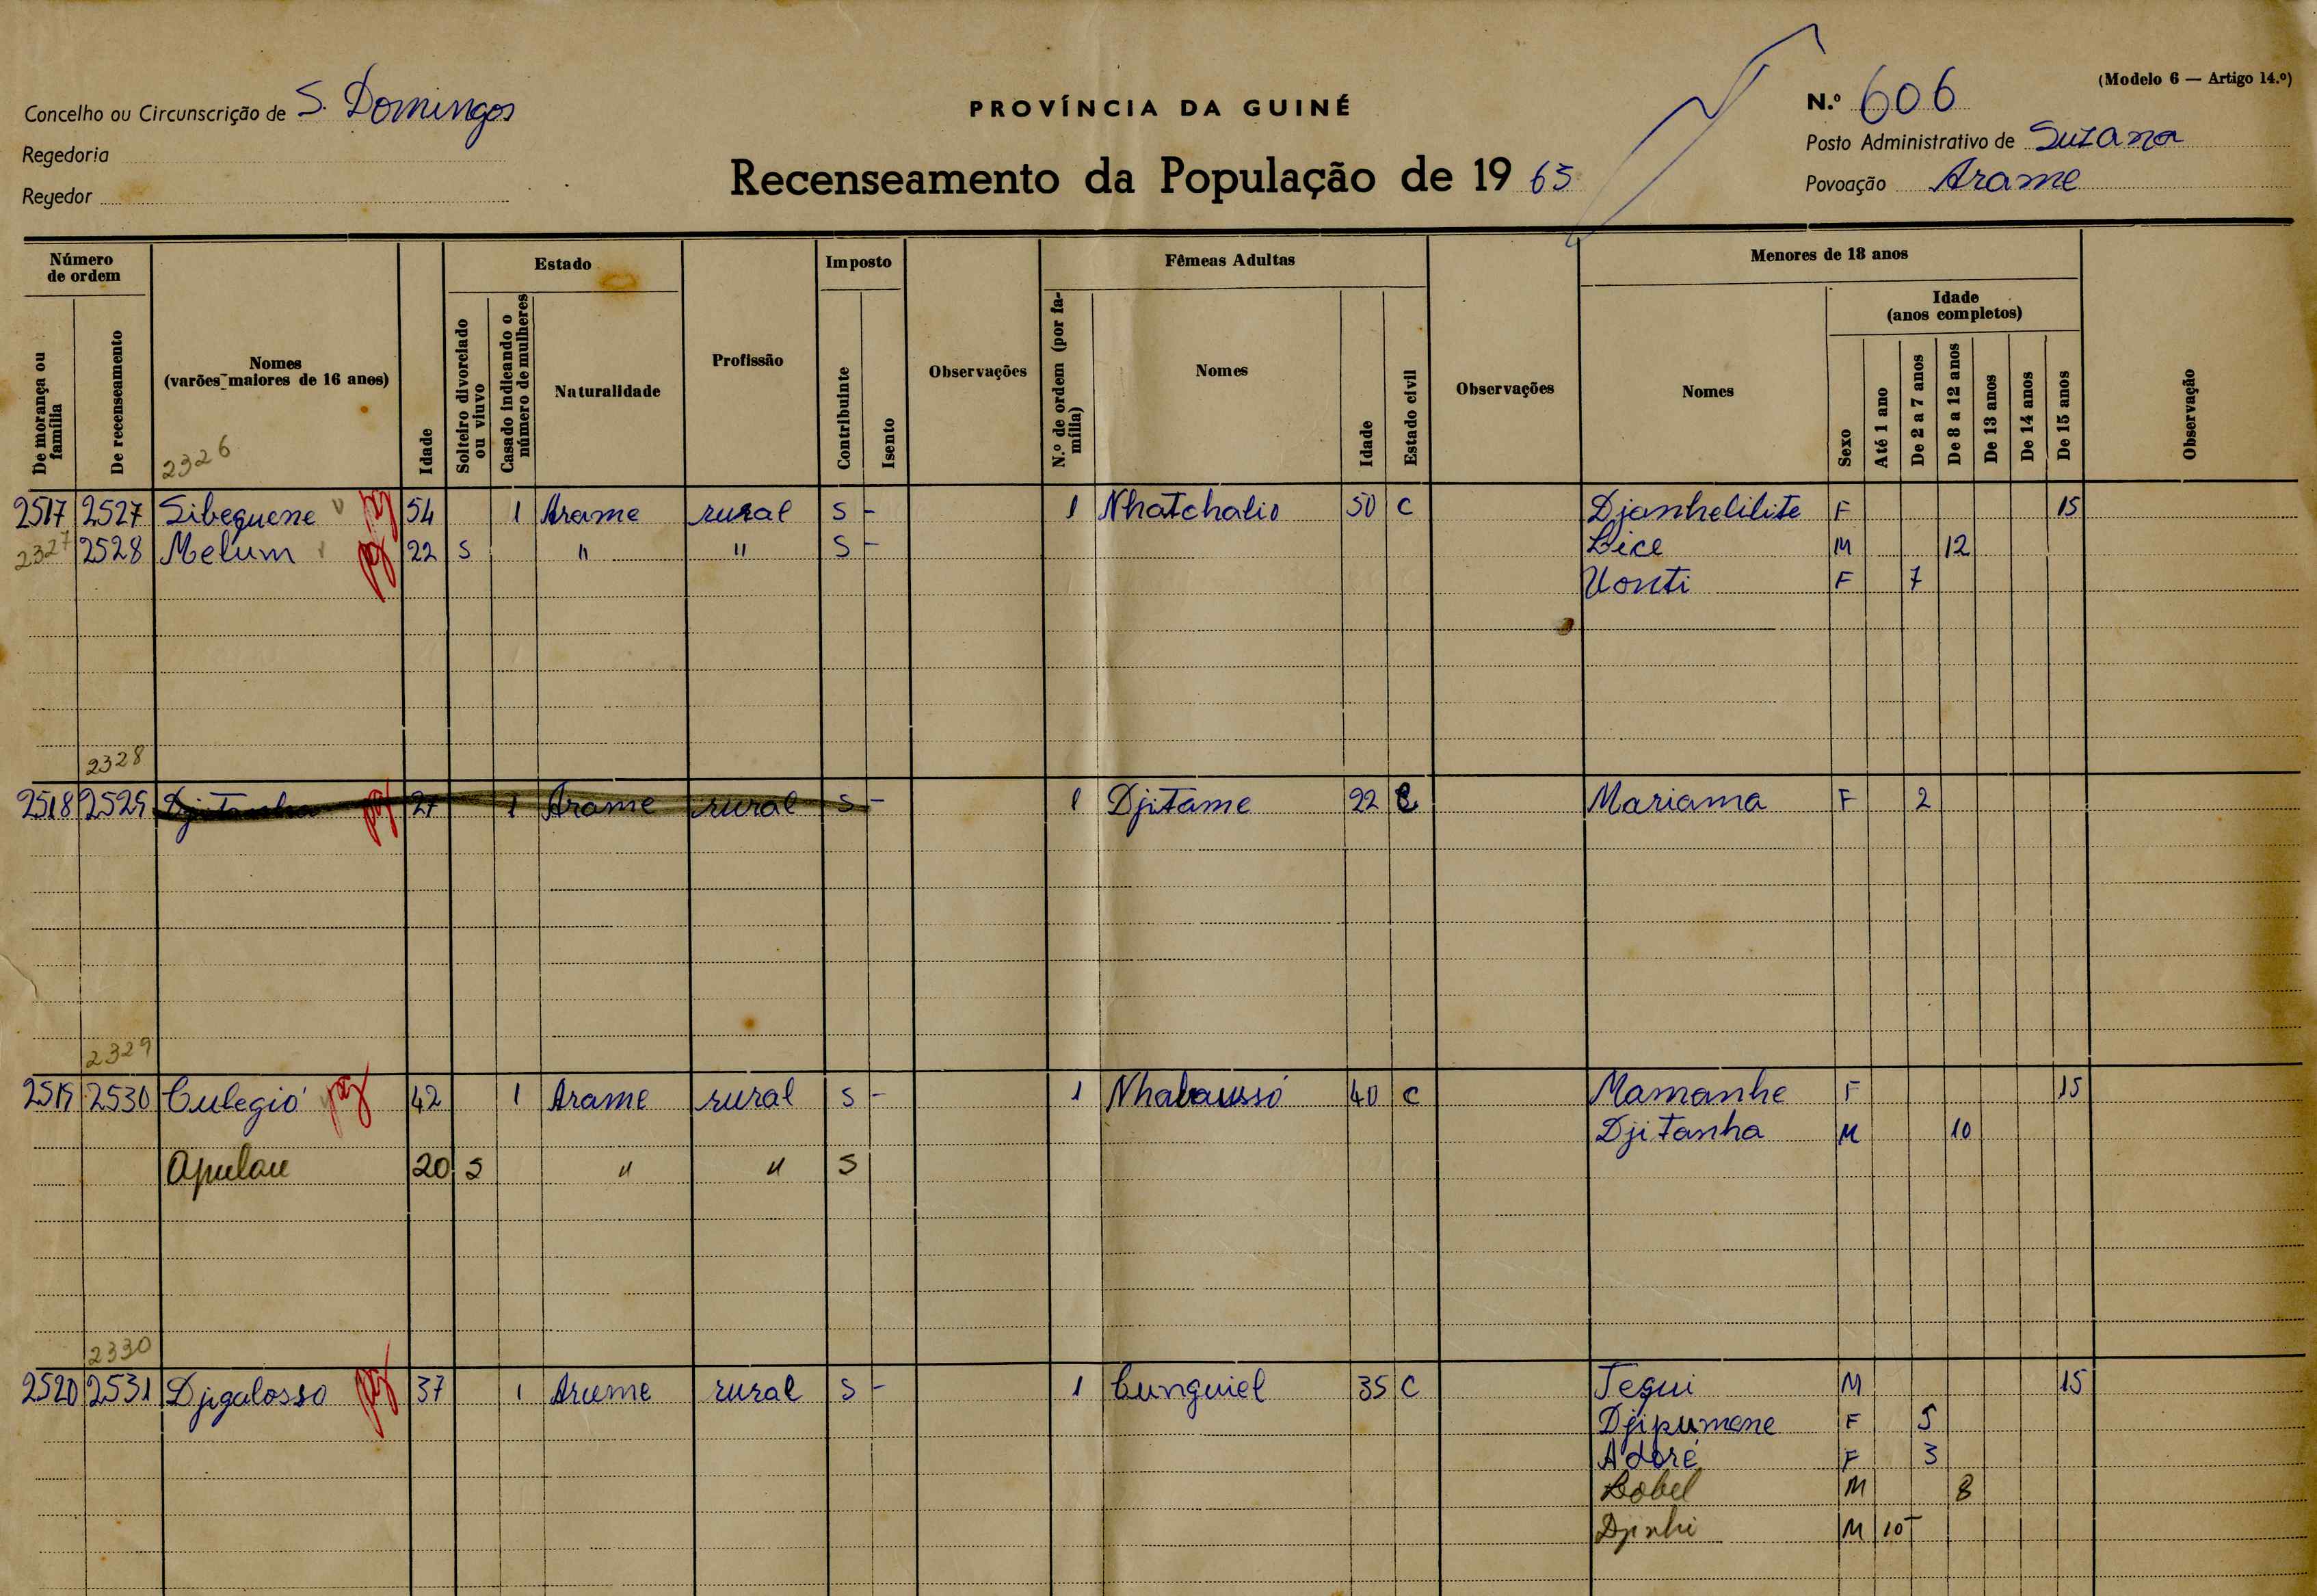 (Modelo 6 — Artigo 14.º)
Concelho ou Circunscrição de S. Domingos
PROVÍNCIA DA GUINÉ
N.º 606
Regedoria
Posto Administrativo de Suzana
Regedor
Recenseamento da População de 19 65
Povoação Arame
Número de ordem
Estado
Imposto
Fêmeas Adultas
Menores de 18 anos
Idade (anos completos)
De morança ou família
De recenseamento
Nomes (varões maiores de 16 anos)
Idade
Solteiro divorciado ou viuvo
Casado indicando o número de mulheres
Naturalidade
Profissão
Contribuinte
Isento
Observações
N.º de ordem (por família)
Nomes
Idade
Estado civil
Observações
Nomes
Sexo
Até 1 ano
De 2 a 7 anos
De 8 a 12 anos
De 13 anos
De 14 anos
De 15 anos
Observação
2326
2517 2527 Sibequene pg 54 1 Arame rural S - 1 Nhatchalio 50 C Djanhelilite F 15
2327 2528 Melum pg 22 S " " S - Lice M 12
Uonti F 7
2328
2518 2529 Djitanha pg 27 1 Arame rural S - 1 Djitame 22 C Mariama F 2
2329
2519 2530 Culegió pg 42 1 Arame rural S - 1 Nhabaussó 40 C Mamanhe F 15
Djitanha M 10
Apulau 20 S " " S
2330
2520 2531 Djigalosso pg 37 1 Arame rural S - 1 Cunguiel 35 C Tegui M 15
Djipumene F 5
Adoré F 3
Lobel M 8
M